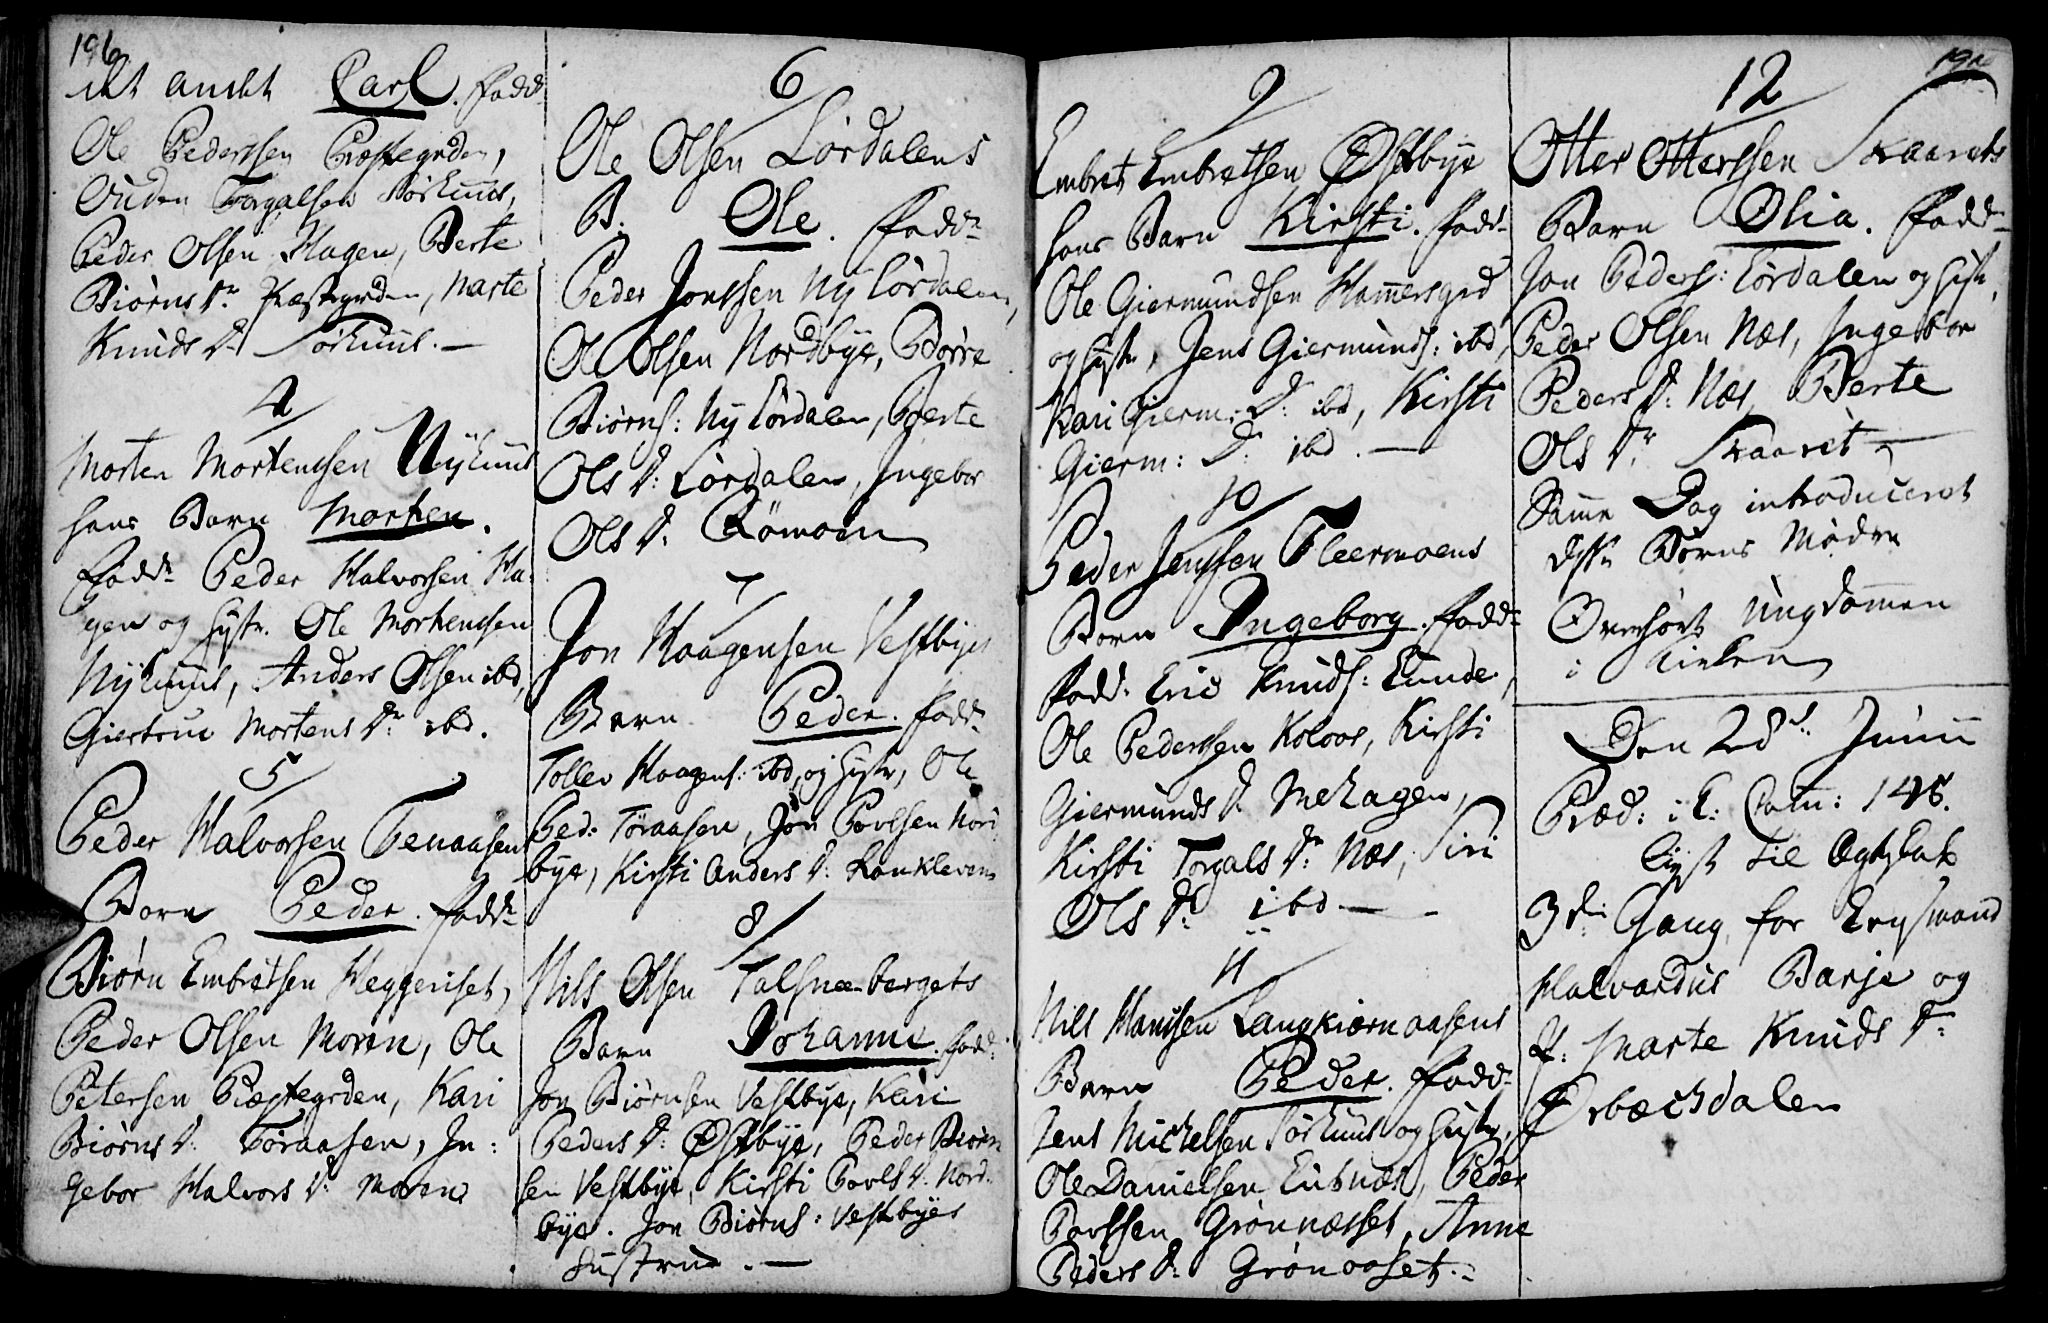 196
det andet Carl. fadd
Ole Pedersen Præstegrden,
Ouden Torgalsen Sørhuus,
Peder Olsen Hagen, Berte
Biørns Dr Præstegrden, Marte
Knuds Dr Sørhuus. —
4
Morten Mortenssen Nÿhuus
hans Barn Morten.
Fadd: Peder Halvorsen Ha-
gen og Hystr. Ole Mortenssen
Nÿhuus, Anders Olsen ibd,
Giertrue Mortens Dr ibd.
5
Peder Halvorsen Tenaasens
Barn Peder. fadd:
Biørn Embretsen Heggeriset,
Peder Olsen Moren, Ole
Petersen Præstegrden, Kari
Biørns D: Toraasen, In:
gebor Halvors D: Moren
6
Ole Olsen Lørdalens
B. Ole. Fadd:
Peder Jonssen Nÿ Lørdalen,
Ole Olsen Nordbye, Børre
Biørns: Nÿ Lørdalen, Berte
Ols D: Lørdalen, Ingebor
Ols D. Römoen
7
Jon Haagensen Vestbyes
Barn Peder. fadd:
Tollev Haagens: ibd, og Hystr, Ole
Ped: Töraasen, Jon Povlsen Nord
bye, Kirsti Anders D:
8
Nils Olsen Talsnesbergets
Barn Johanne. fad:
Jon Biørnsen Vestbye, Kari
Peders D: Østbye, Peder Biørn
sen Vestbye, Kirsti Povls D: Nord-
bye. Jon Biørns: Vestbyes
Hustrue. —
9
Embret Embretsen Østbye
hans Barn Kirsti. fadd:
Ole Giermundsen Hammersgrd
og Hystr, Jens Giermunds: ibd,
Kari Gierm: D: ibd, Kirsti
Gierm: D: ibd. —
10
Peder Jenssen Fleermoens
Barn Ingeborg. fadd:
fadd: Eric Knuds: Lunde,
Ole Pederssen Koloos, Kirsti
Giermunds D. Mehagen,
Kirsti Torgals Dr Næs, Siri
Ols Dr ibd —
11
Nils Hansen Langkiernaasens
Barn Peder. Fadd:
Jens Michelsen Sørhuus og Hustr,
Ole Danielsen Lutnæs, Peder
Povlssen Grönnæsset, Anne
Peders D: Grönoset.
12
Otter Otterssen Skaarets
Barn Olia. Fadd:
Jon Peders: Lørdalen og Hystr,
Peder Olsen Næs, Ingebor
Peders D: Næs, Berte
Ols Dr Skaaret —
Samme Dag introduceret
disse Børns Mødre
Overhørt Ungdommen
i Kirken
Den 28de Junii
Præd: i L: Catn:
lyst til Ægteskab
3de Gang for
Halvardus Barje og
P: Marte Knuds D:
Ørbæchdalen